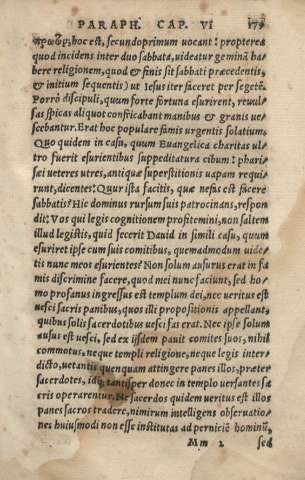 PARAPH. CAP. VI 179
πρωτῳ, hoc est, secundoprimum uocant: propterea
quod incidens inter duo sabbata, uideatur geminā ha
bere religionem, quod & finis sit sabbati præcedentis,
& initium sequentis) ut Iesus iter faceret per segetē.
Porrò discipuli, quum forte fortuna esurirent, reuul
sas spicas aliquot confricabant manibus & granis ue
scebantur. Erat hoc populare famis urgentis solatium.
Quo quidem in casu, quum Euangelica charitas ul
tro fuerit esurientibus suppeditatura cibum: phari
sæi ueteres utres, antiquæ superstitionis uapam requi
runt, dicentes: Quur ista facitis, quæ nefas est facere
sabbatis? Hic dominus rursum suis patrocinans, respon
dit: Vos qui legis cognitionem profitemini, non saltem
illud legistis, quid fecerit Dauid in simili casu, quum
esuriret ipse cum suis comitibus, quemadmodum uide
tis nunc meos esurientes? Non solum ausurus erat in fa
mis discrimine facere, quod mei nunc faciunt, sed ho
mo profanus ingressus est templum dei, nec ueritus est
uesci sacris panibus, quos illi propositionis appellant,
quibus solis sacerdotibus uesci fas erat. Nec ipse solum
ausus est uesci, sed ex ijsdem pauit comites suos, nihil
commotus, neque templi religione, neque legis inter
dicto, uetantis quenquam attingere panes illos, præter
sacerdotes, idq; tantisper donec in templo uersantes sa
cris operarentur. Ne sacerdos quidem ueritus est illos
panes sacros tradere, nimirum intelligens obseruatio
nes huiusmodi non esse institutas ad perniciē hominū,
Mm 2 sed